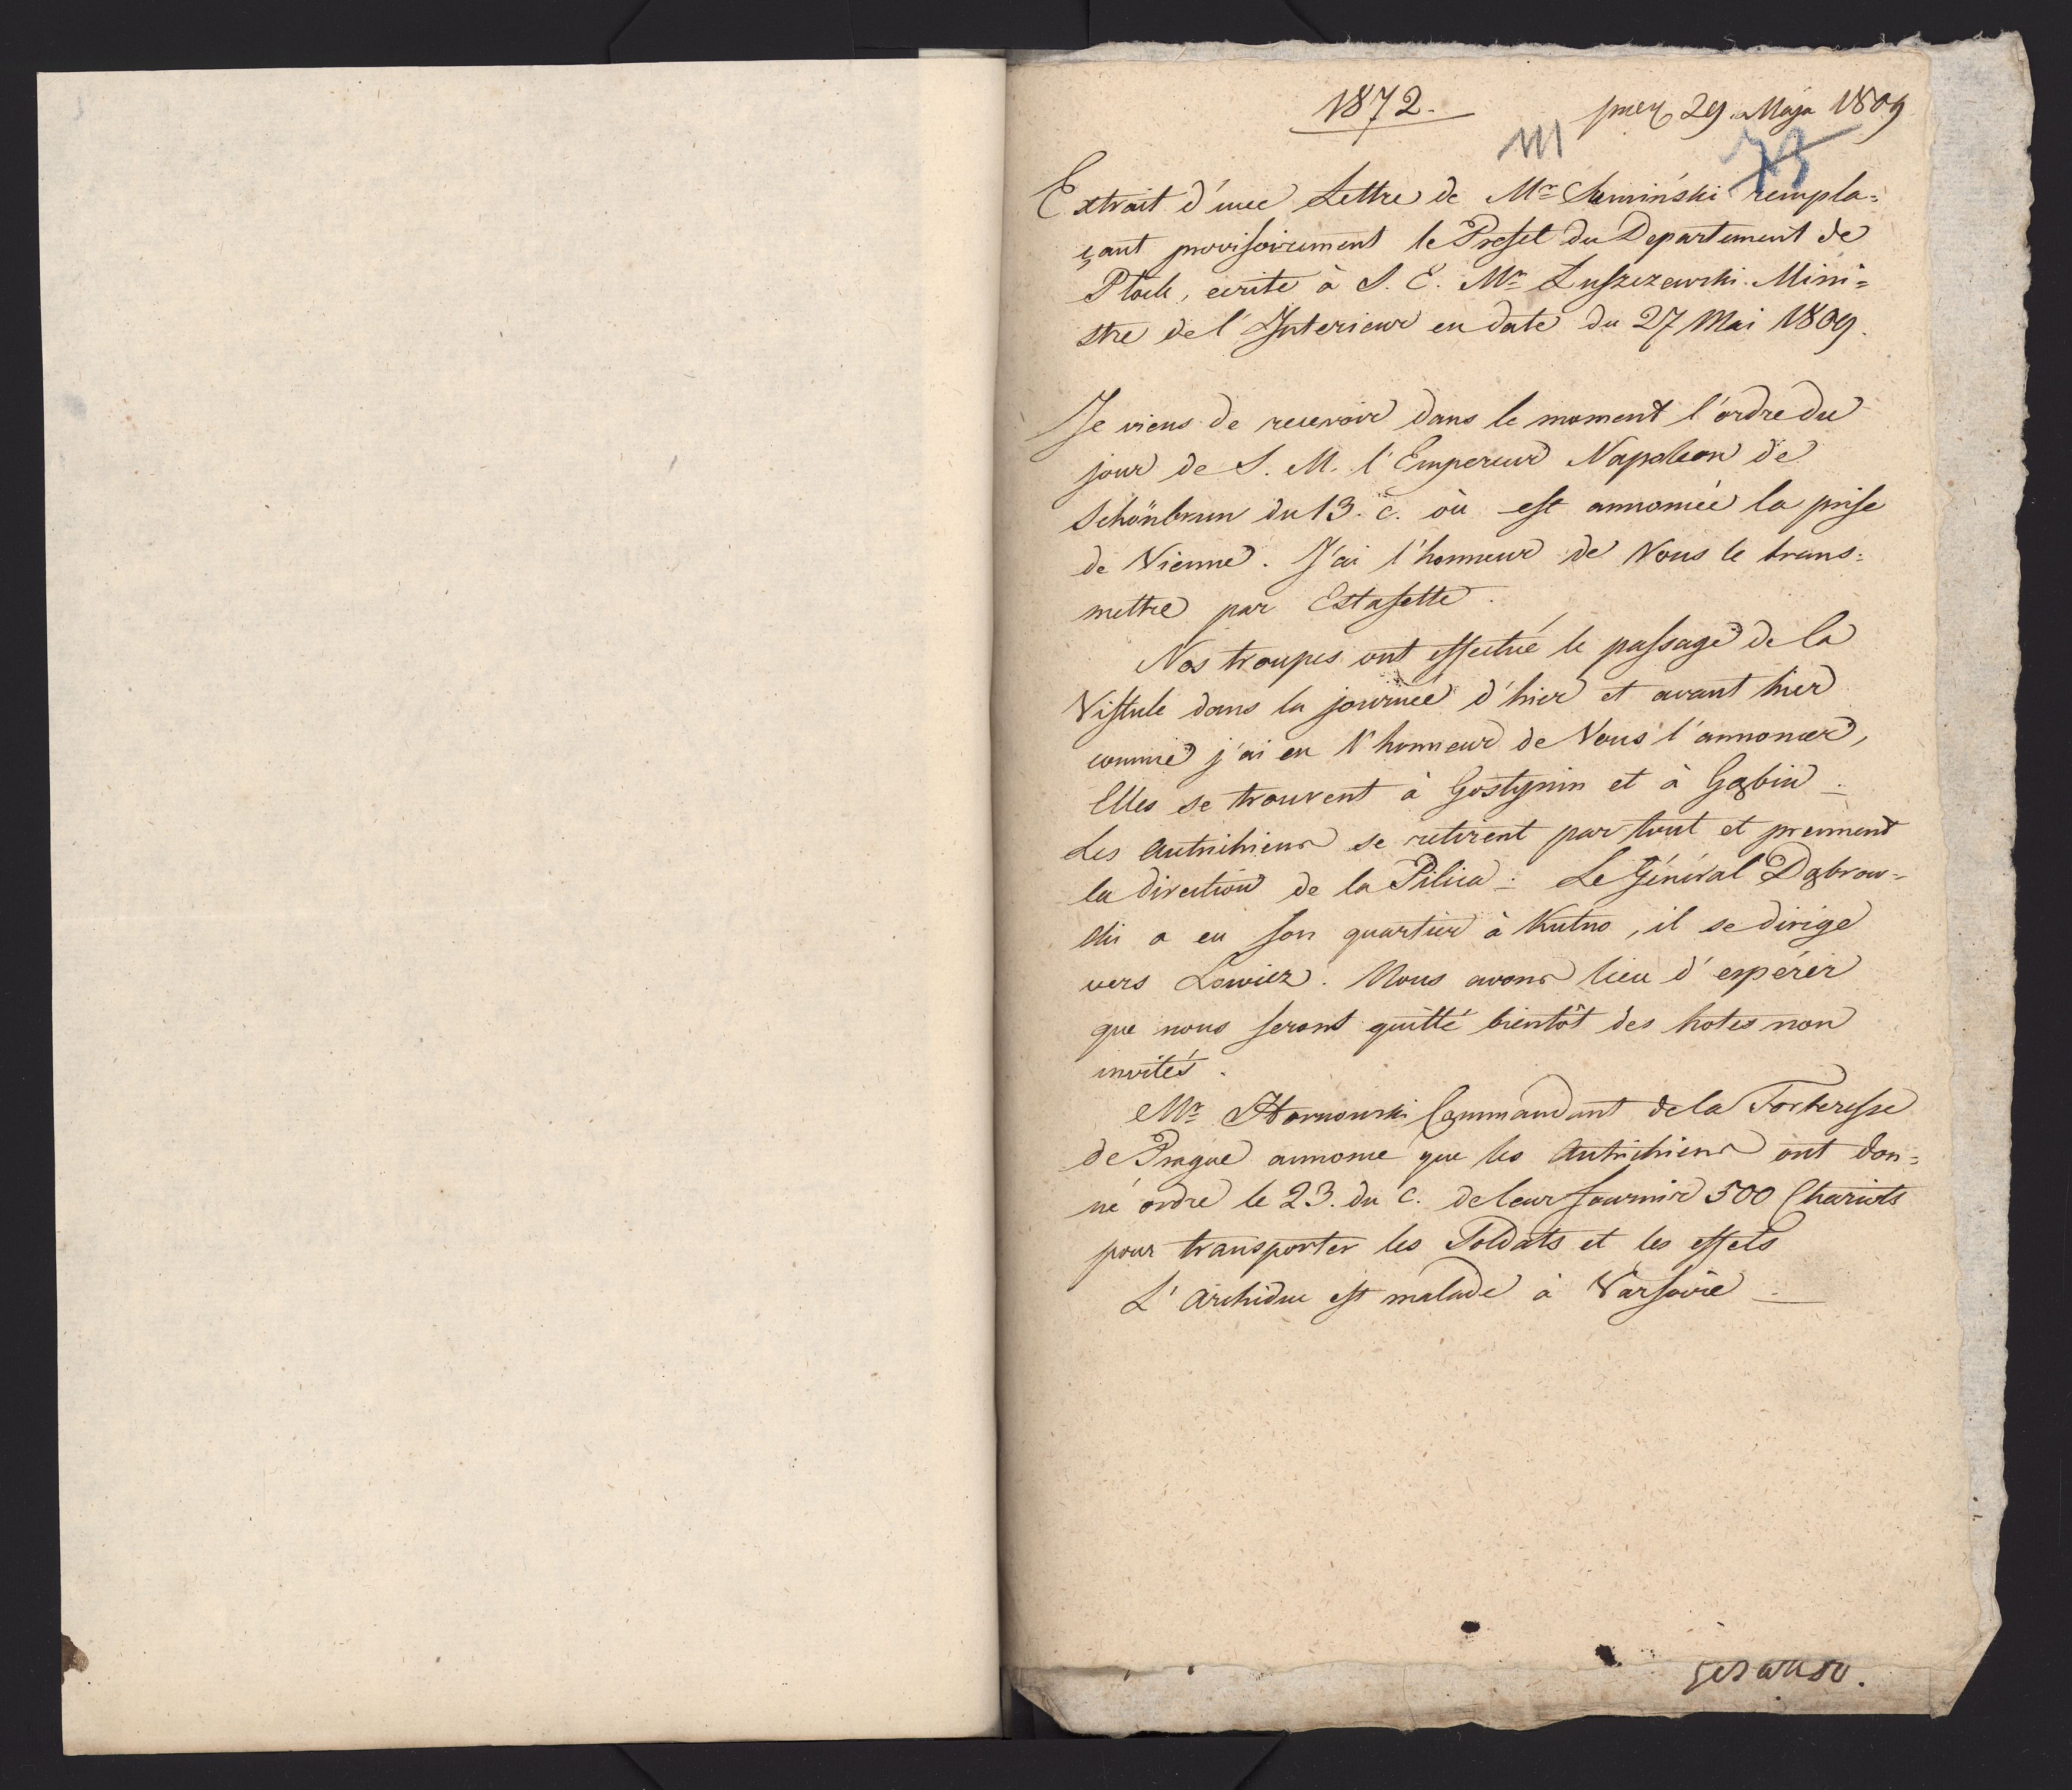 1872. 29. Maja 1809
73
Extrait d'une Lettre de Mr rempla=
çant provisoirement le Prefet du Departement de
Plock, ecrite à S. E. Mr Luszczewski Mini=
stre de l'Interieur en date du 27 Mai 1809.
Je viens de recevoir dans le moment l'ordre du
jour de S. M. l'Empereur Napoleon de
Schönbrun du 13. c. où est annoncée la prise
de Vienne. J'ai l'honneur de Vous le trans=
mettre par Estafette.
Nos troupes ont effectué le passage de la
Vistule dans la journée d'hier et avant hier
comme j'ai eu l'honneur de Vous l'annoncer,
Elles se trouvent à Gostynin et à Gąbin.
Les Autrichiens se retirent par tout et prennent
la direction de la Pilica. Le Général Dąbrow=
ski a eu son quartier à Kutno, il se dirige
vers Lowicz. Nous avons lieu d'espérer
que nous seront quitté bientôt des hotes non
invités.
Mr Hornowski Commandant de la Forteresse
de Prague annonce que les Autrichiens ont don=
né ordre le 23. du c. de leur fournir 500 Chariots
pour transporter les Soldats et les effets
L'Archiduc est malade à Varsovie